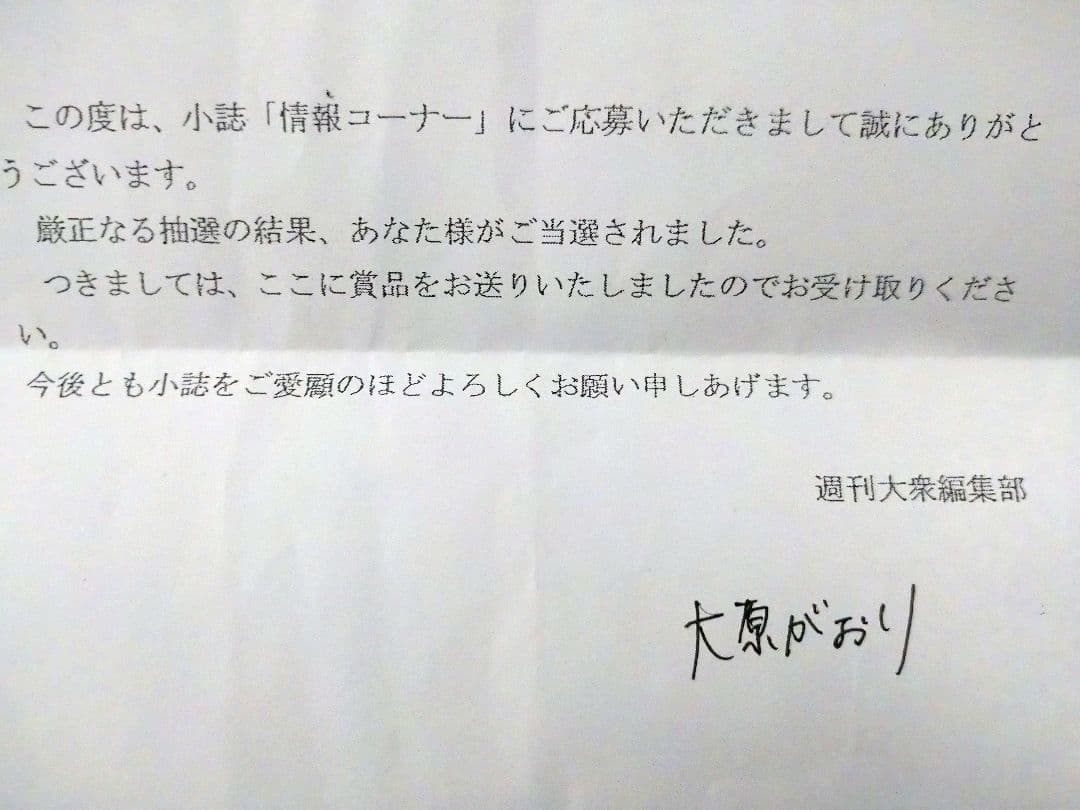 この度は、小誌「情報コーナー」にご応募いただきまして誠にありがと
うございます。
厳正なる抽選の結果、あなた様がご当選されました。
つきましては、ここに賞品をお送りいたしましたのでお受け取りくださ
い。
今後とも小誌をご愛顧のほどよろしくお願い申しあげます。
週刊大衆編集部
大原がおり